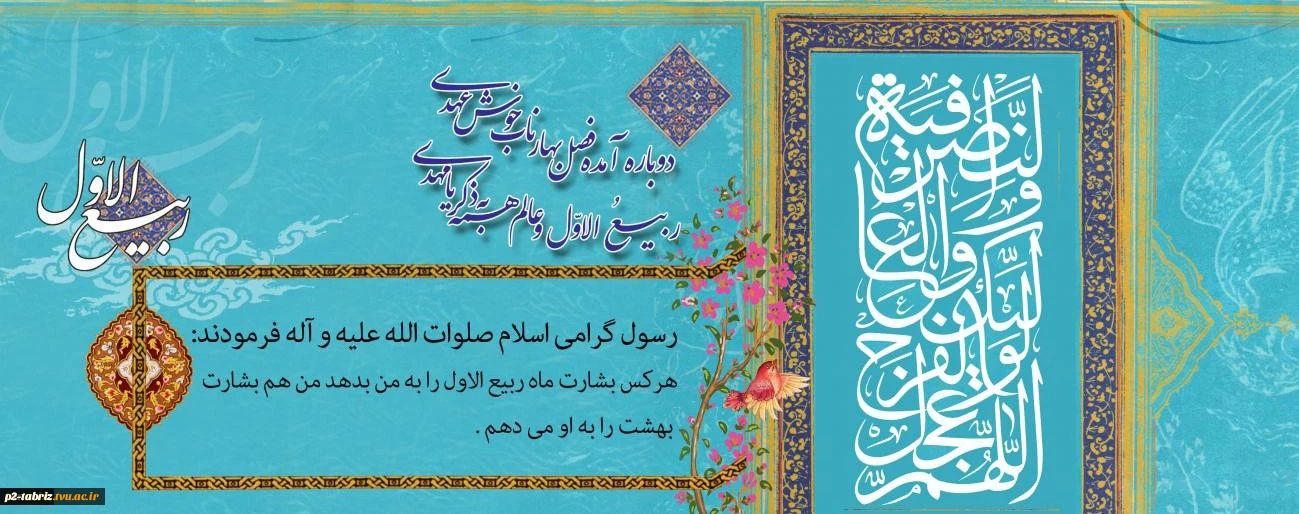 دوباره آمده فصل بهار ناب خوش عهدی
ربیعُ الاوّل و عالم همه به ذکر یا مهدی
ربیع الاوّل
رسول گرامی اسلام صلوات الله علیه و آله فرمودند:
هرکس بشارت ماه ربیع الاول را به من بدهد من هم بشارت
بهشت را به او می دهم .
اللّهُمَّ عَجِّل لِوَلیِّکَ الفَرَجَ وَالعافِیَةَ وَالنَّصر
ربیع الاوّل
p2-tabriz.tvu.ac.ir